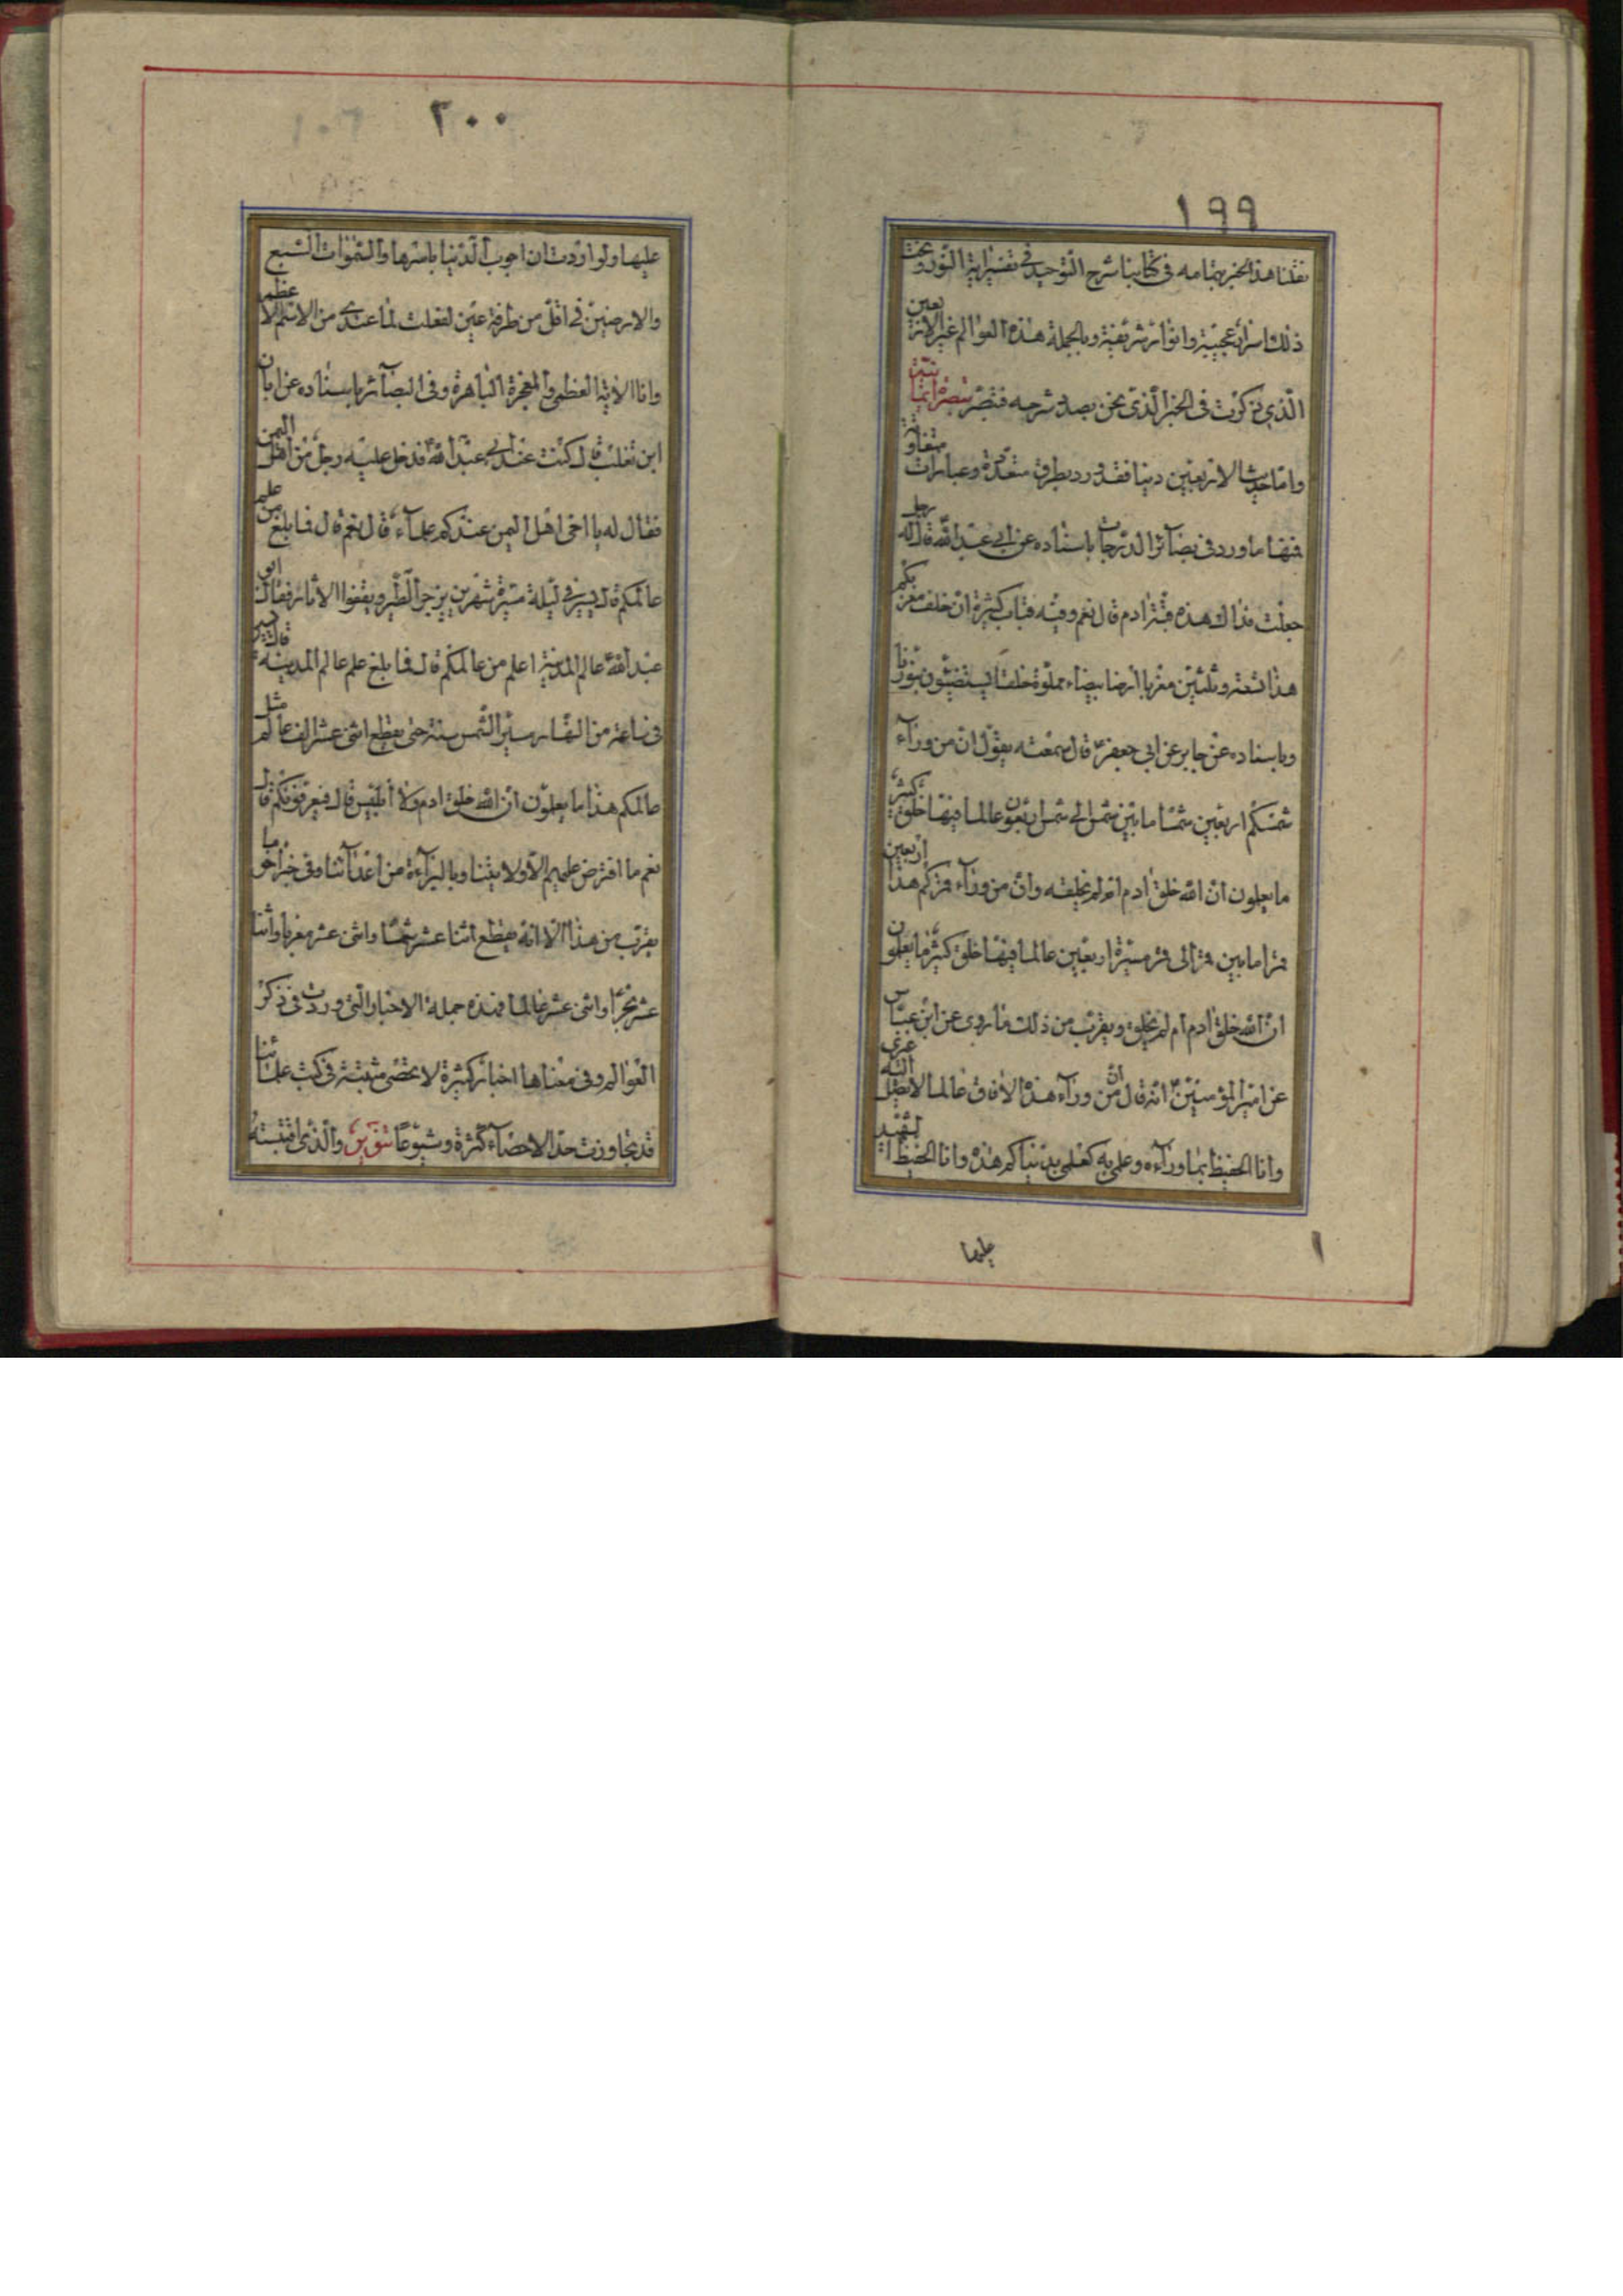 ١٩٩
نقلنا هذا الخبر بتمامه فى كتابنا شرح التوحيد فى تفسير اية النور وتحت
ذلك اسرار عجيبة وانوار شريفة وبالجملة هذه العوالم غير الاربعين
الّذى ذكرت فى الخبر الّذى نحن بصدد شرحه فتبصّر تبصرة
وامّا حديث الاربعين دنيا فقد ورد بطرق متعدّدة وعبارات متفاوتة
فمنها ما ورد فى بصائر الدرجات باسناده عن ابى عبد اللّه قال له رجل
جعلت فداك هذه قبّة ادم قال نعم وفيه قباب كثيرة انّ خلف مغربكم
هذا تسعة وثلثين مغربا ارضا بيضاء مملوّة خلقا يستضيئون بنورنا
وباسناده عن جابر عن ابى جعفر ع قال سمعته يقول انّ من ورآء
شمسكم اربعين شمسا ما بين شمس الى شمس اربعون عالما فيها خلق كثير
ما يعلمون انّ اللّه خلق ادم ام لم يخلقه وانّ من ورآء قمركم هذا اربعين
قمرا ما بين قمر الى قمر مسيرة اربعين عالما فيها خلق كثير ما يعلمون
انّ اللّه خلق ادم ام لم يخلق ويقرب من ذلك ما روى عن ابن عبّاس
عن امير المؤمنين ع انّه قال انّ من ورآء هذه الآفاق عالما لا يصل اليه غيرى
وانا الحفيظ بما ورآءه وعلمى به كعلمى بدنياكم هذه وانا الحفيظ الشهيد
عليها
٢٠٠
عليها ولو اردت ان اجوب الدّنيا باسرها والسّموات السّبع
والارضين فى اقلّ من طرفة عين لفعلت لما عندى من الاسم الاعظم
وانا الآية العظمى والمعجزة الباهرة وفى البصآئر باسناده عن ابان
ابن تغلب قال كنت عند ابى عبد اللّه ع فدخل عليه رجل من اهل اليمن
فقال له يا اخى اهل اليمن عندكم علمآء قال نعم قال فما بلغ من علم
عالمكم قال يسير فى ليلة مسيرة شهرين يزجر الطّير ويقفوا الاثار فقال ابو
عبد اللّه ع عالم المدينة اعلم من عالمكم قال فما بلغ علم عالم المدينة قال يسير
فى ساعة من النّهار مسير الشّمس سنة حتى يقطع اثنى عشر الف عالم مثل
عالمكم هذا ما يعلمون انّ اللّه خلق ادم ولا ابليس قال فيعرفونكم قال
نعم ما افترض عليهم الّا ولايتنا وبالبرآءة من اعدآئنا وفى خبر اخر ما
يقرب من هذا الّا انّه يقطع اثنا عشر شمسا واثنى عشر مغربا واثنا
عشر بحرا واثنى عشر عالما فهذه جملة الاخبار الّتى وردت فى ذكر
العوالم وفى معناها اخبار كثيرة لا تحصى مثبتة فى كتب علمآئنا
قد تجاوزت حدّ الاحصآء كثرة وشيوعا تنوير والّذى اقتبسته